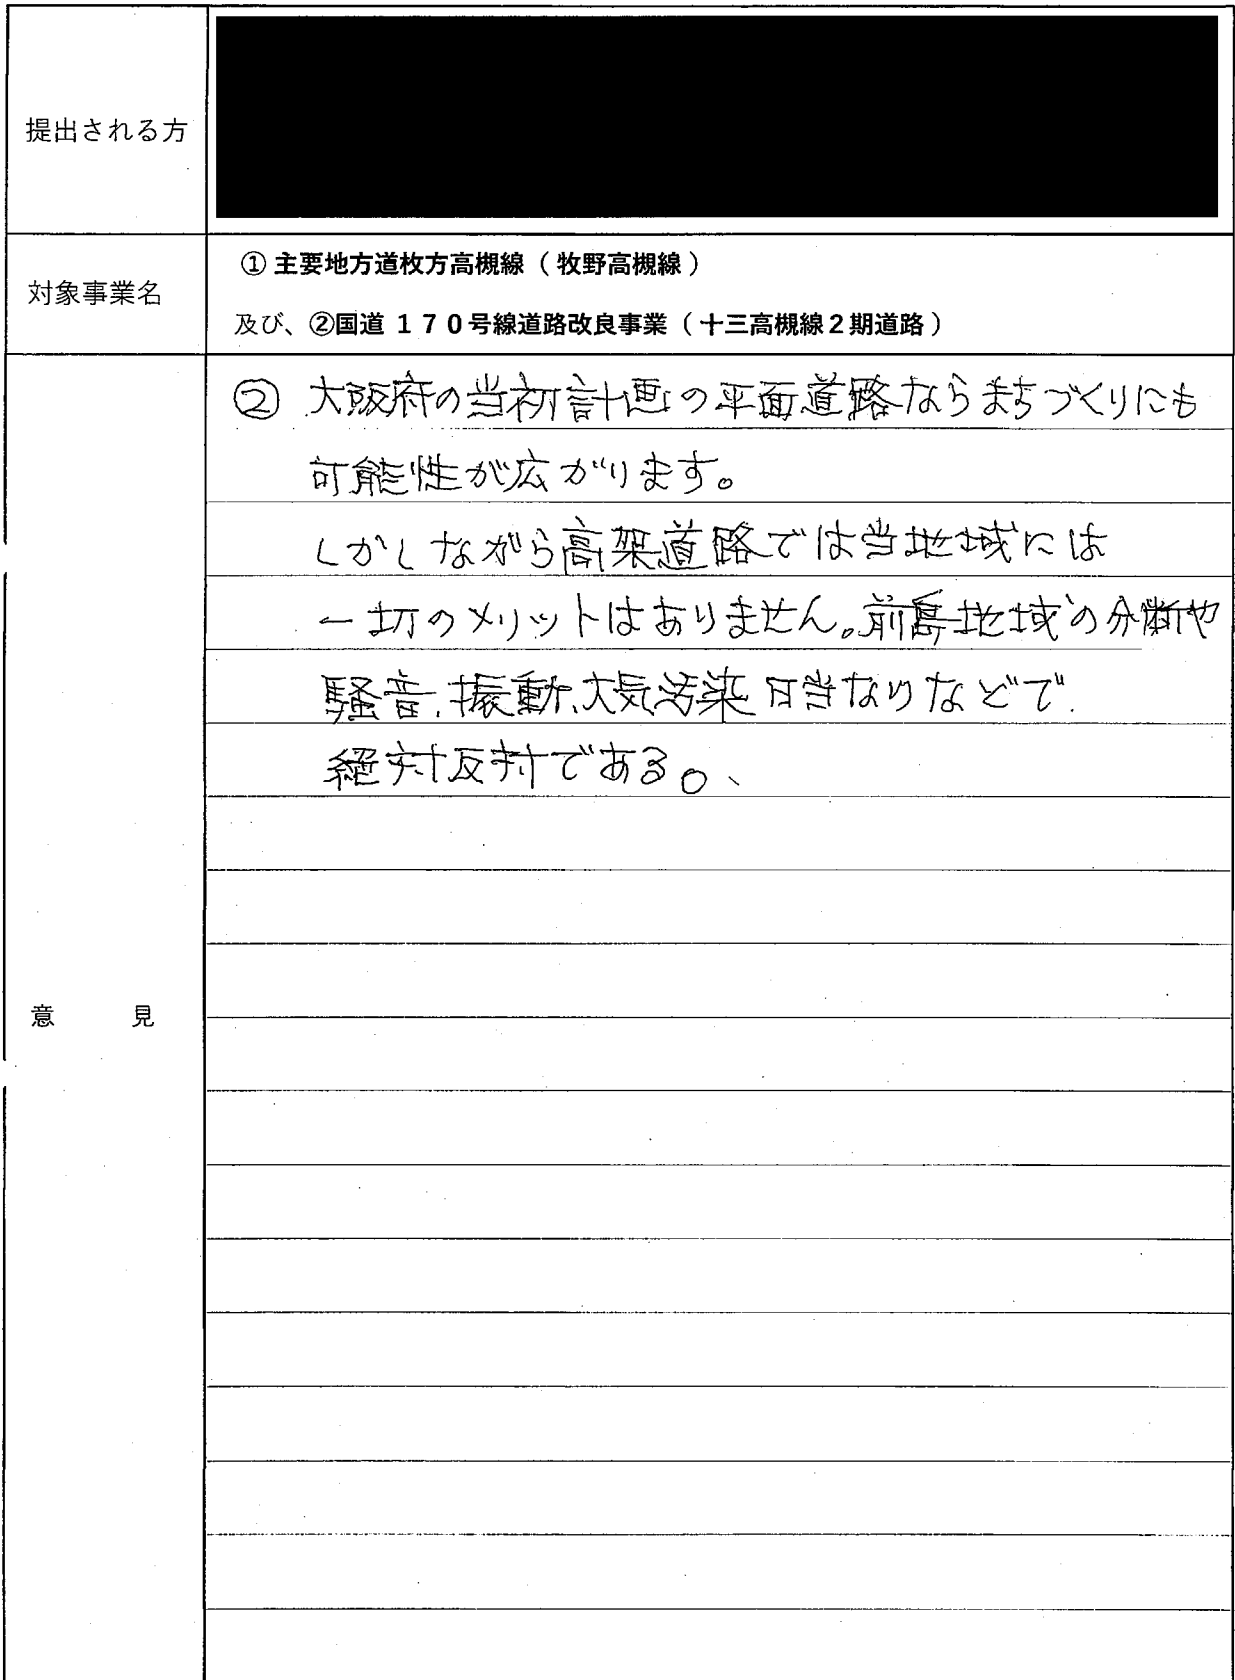 提出される方
対象事業名
① 主要地方道枚方高槻線（牧野高槻線）
及び、②国道１７０号線道路改良事業（十三高槻線２期道路）
意見
② 大阪府の当初計画の平面道路ならまちづくりにも
可能性が広がります。
しかしながら高架道路では当地域には
一切のメリットはありません。前島地域の分断や
騒音、振動、大気汚染日当なりなどで
絶対反対である。